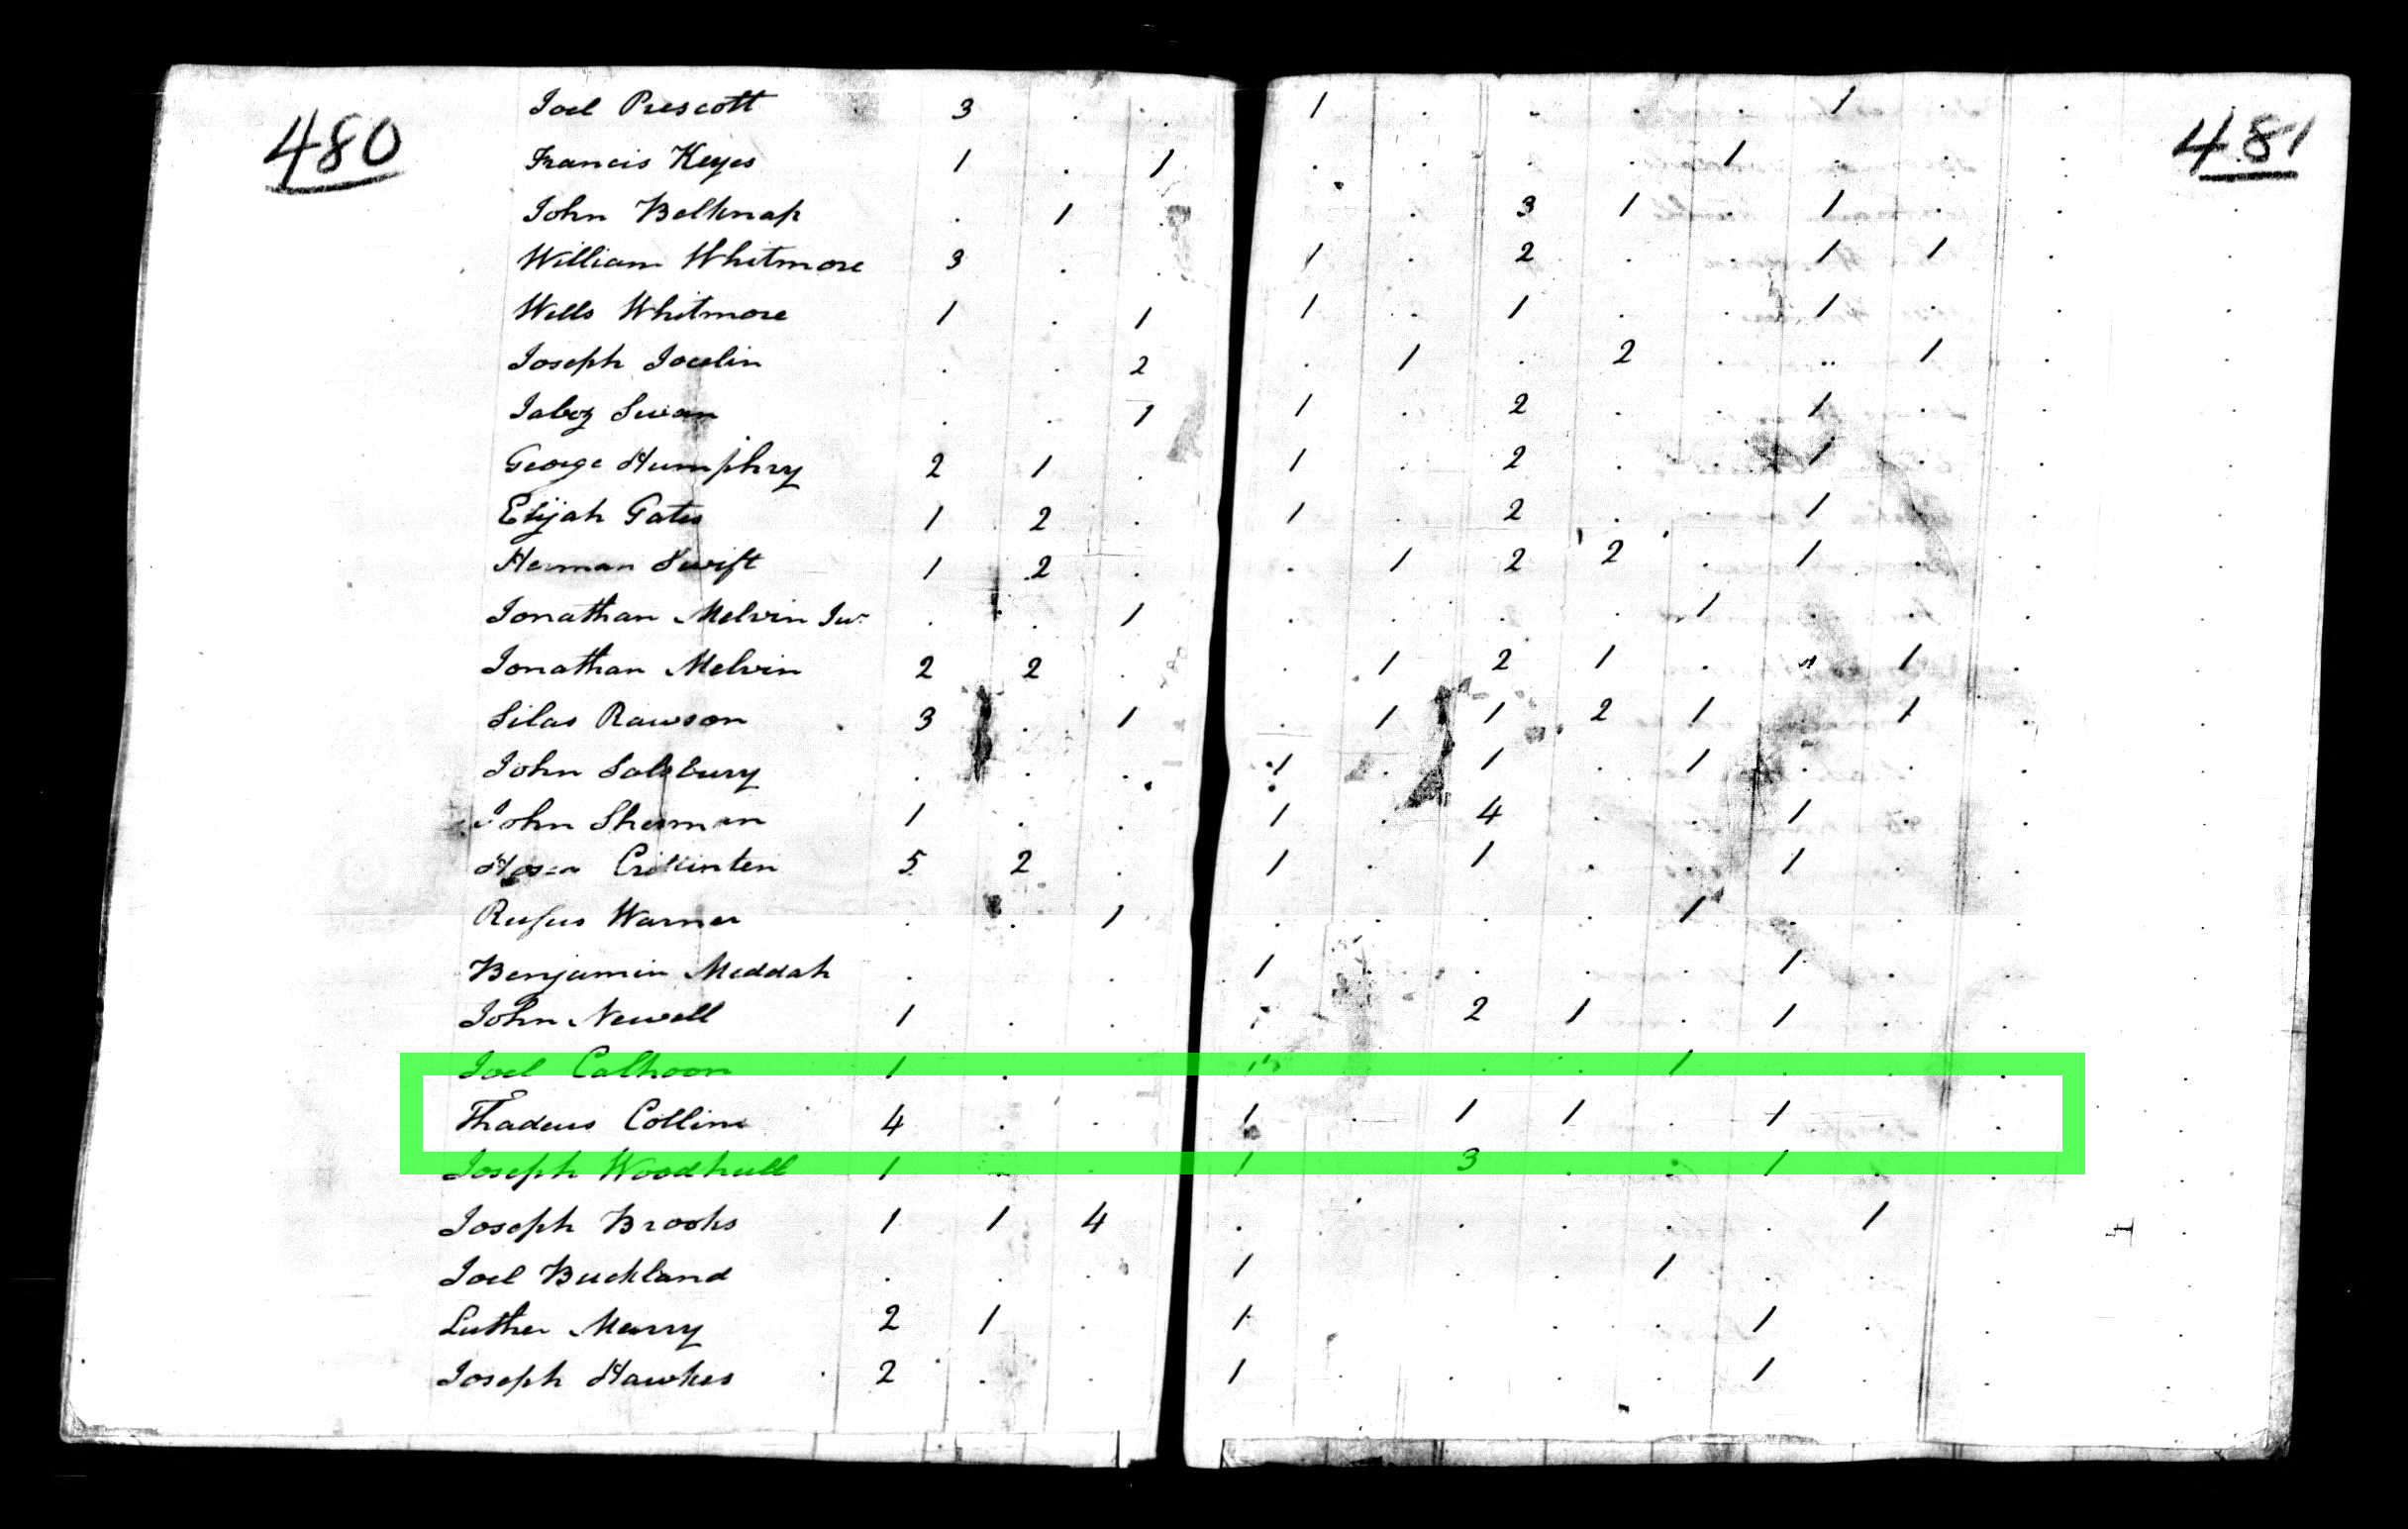 480
481
Joel Prescott 3 . . 1 . . . . 1 .
Francis Keyes 1 . 1 . . . . 1 . .
John Belknap . 1 . . . 3 1 . 1 .
William Whitmore 3 . . 1 . 2 . . 1 1
Wells Whitmore 1 . 1 1 . 1 . . 1 .
Joseph Jocelin . . 2 . 1 . 2 . .. 1
Jabez Swan . . 1 1 . 2 . . 1 .
George Humphry 2 1 . 1 . 2 . . 1 .
Elijah Gates 1 2 . 1 . 2 . . 1 .
Herman Swift 1 2 . . 1 2 2 . 1 .
Jonathan Melvin Jur . . 1 . . . . 1 . .
Jonathan Melvin 2 2 . . 1 2 1 . 1
Silas Rawson 3 . 1 . 1 1 2 1 . 1
John Salsbury . . . 1 . 1 . 1 . .
John Sherman 1 . . 1 . 4 . . 1 .
5 2 . 1 . 1 . . 1 .
Rufus Warner . . 1 . . . . 1 . .
Benjamin Meddah . . 1 . . . . 1 .
John Newell 1 . . 2 1 . 1 .
Joel Calhoon 1 . . . 1 . .
Thadeus Collins 4 . . 1 . 1 1 . 1 .
Joseph Woodhull 1 . . 1 3 . . 1 .
Joseph Brooks 1 1 4 . . . . . . 1
Joel Buckland . . . 1 . . 1 . .
Luther Merry 2 1 1 . . . . 1 .
Joseph Hawkes 2 . . 1 . . . . 1 .